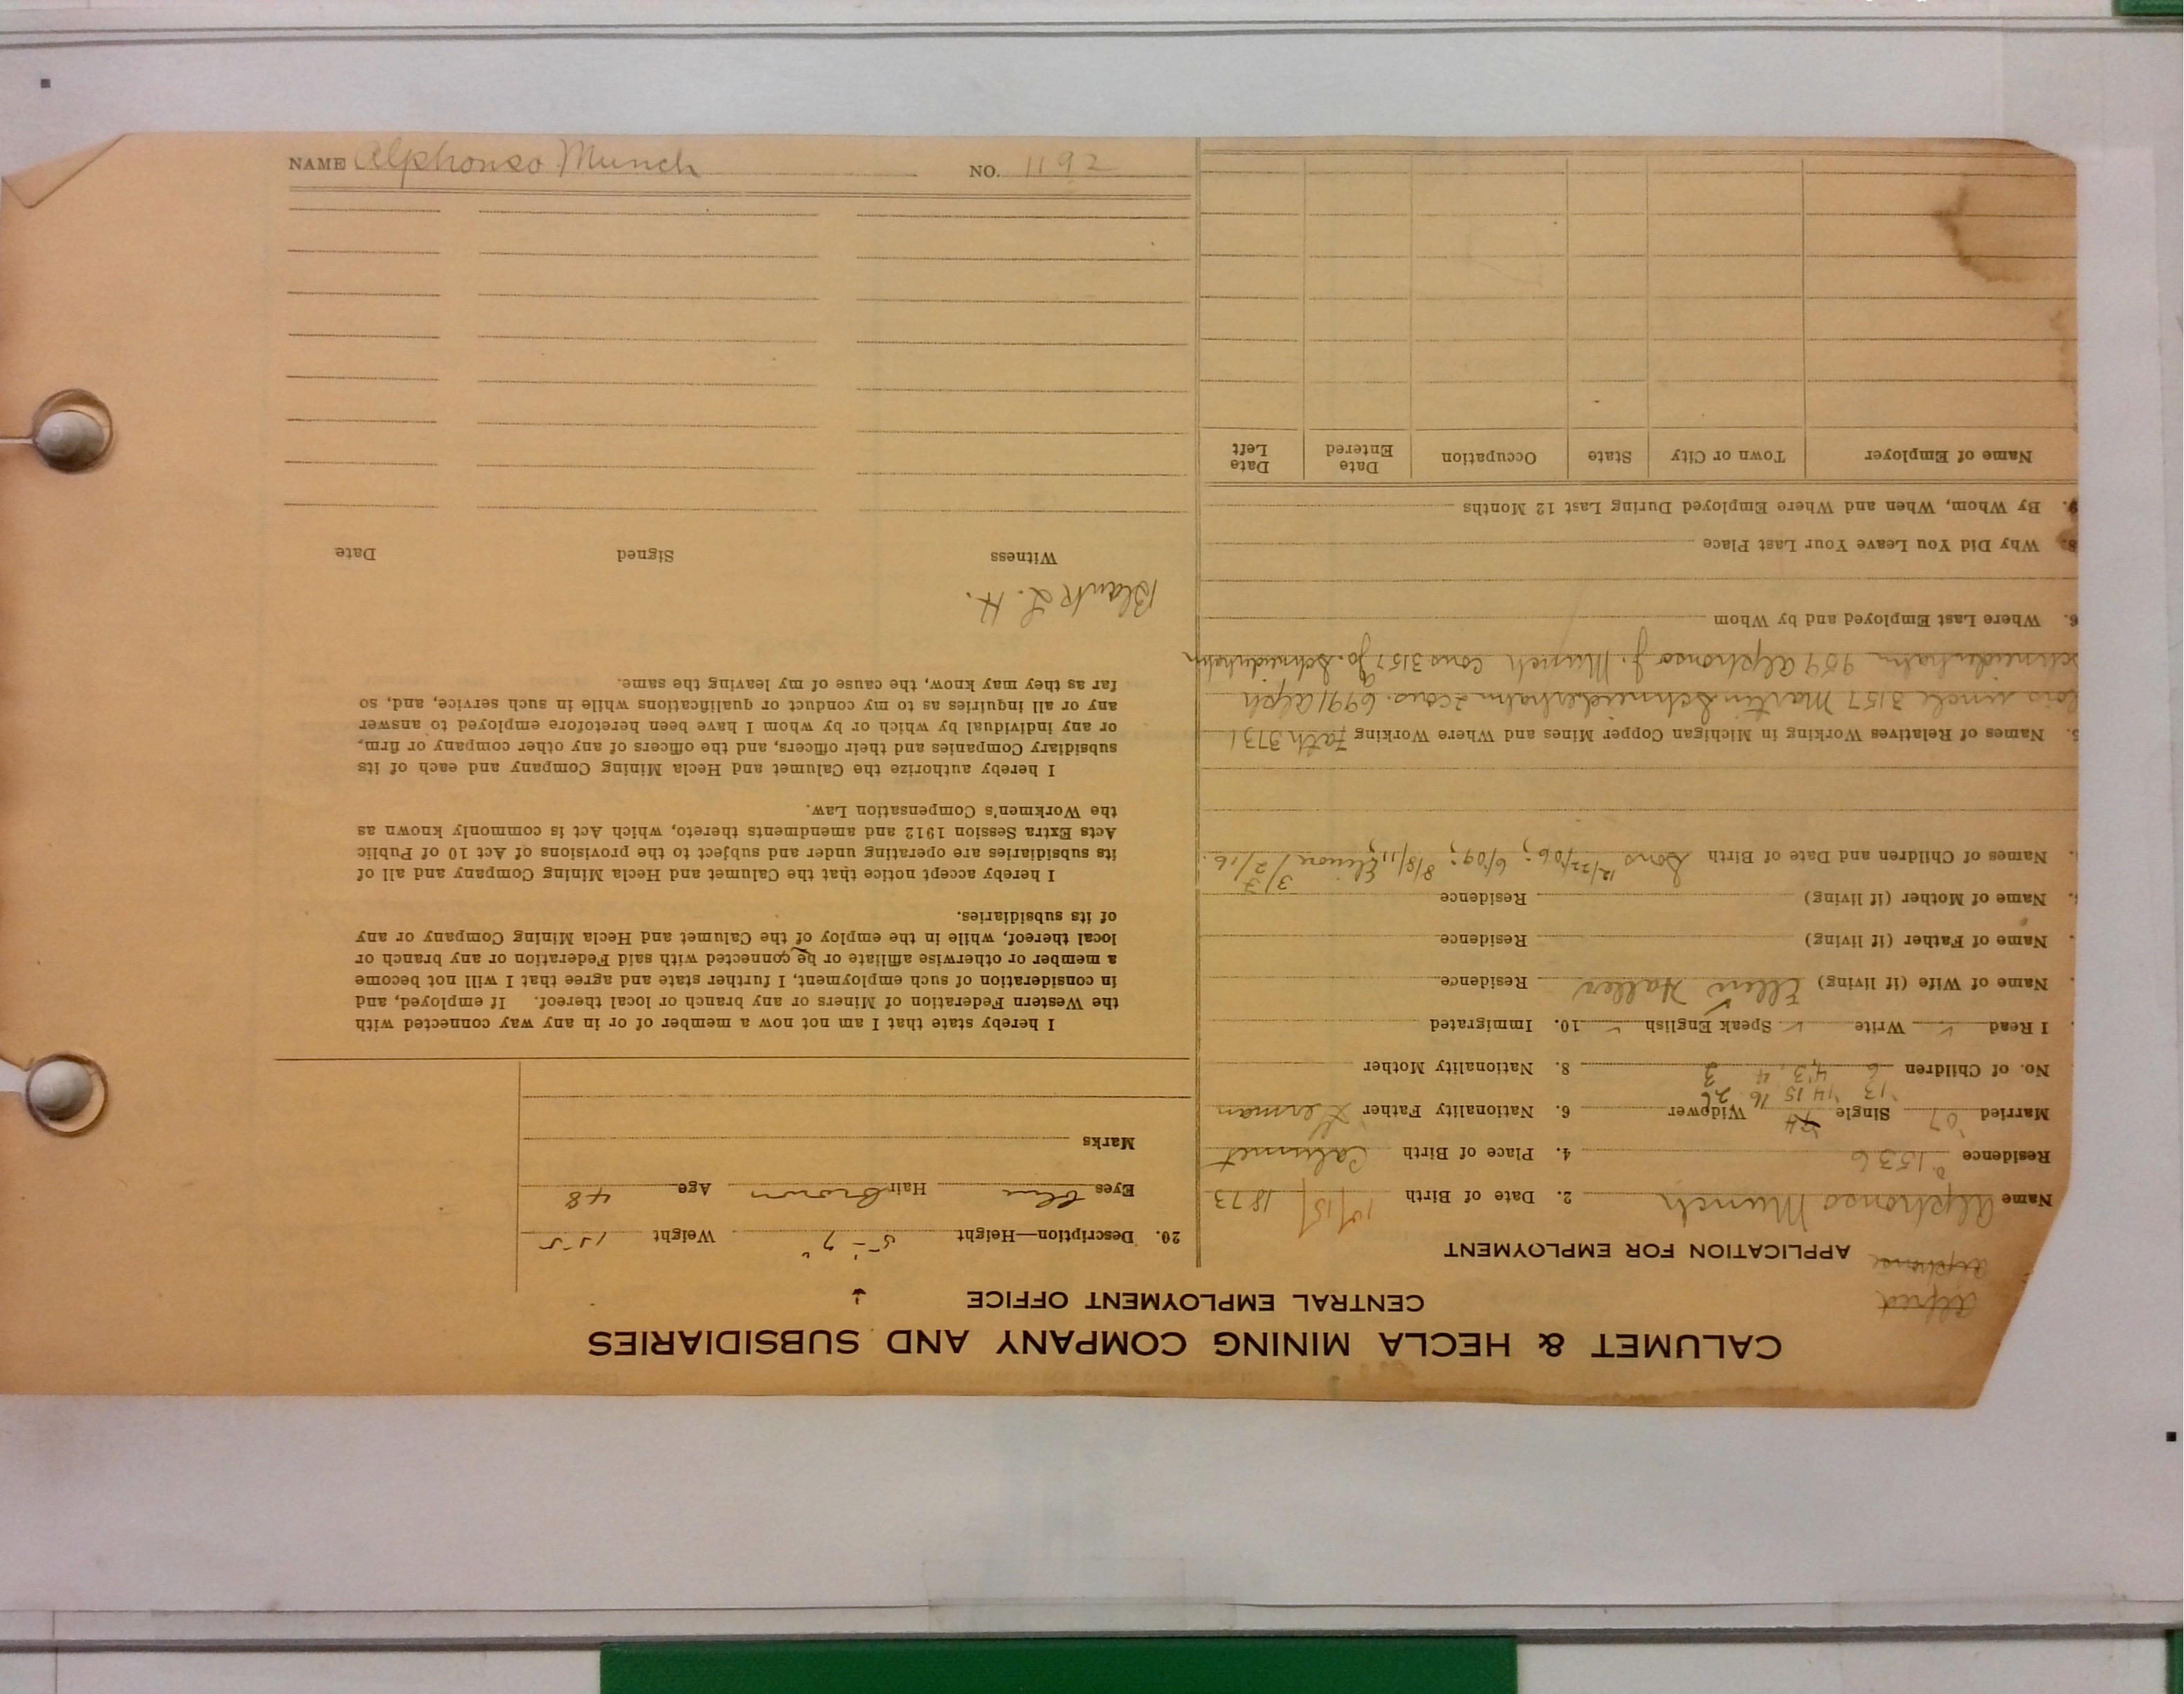 CALUMET & HECLA MINING COMPANY AND SUBSIDIARIES
CENTRAL EMPLOYMENT OFFICE
Alfred
Alphonse
APPLICATION FOR EMPLOYMENT
Name Alphonso Munch 2. Date of Birth 10/15/1873
Residence 1536 4. Place of Birth Calumet
Married '07 Single Widower 6. Nationality Father German
'13 '14 15 16 26
No. of Children 6 4, 3, 4 3 8. Nationality Mother
I Read ✓ Write ✓ Speak English ✓ 10. Immigrated
Name of Wife (if living) Ellen Haller Residence
Name of Father (if living) Residence
Name of Mother (if living) Residence
Names of Children and Date of Birth Sons 12/22/06; 6/09; 8/8/11; Elinore / 3/2/16.
5. Names of Relatives Working in Michigan Copper Mines and Where Working Fath 3731
uncle 3157 Martin Schneiderhahn 2 cous. 6991 Alph
Schneiderhahn 959 Alphonso J. Munch Cous 3157 Jo. Schneiderhahn
6. Where Last Employed and by Whom
8. Why Did You Leave Your Last Place
9. By Whom, When and Where Employed During Last 12 Months
Name of Employer Town or City State Occupation Date Entered Date Left
20. Description—Height 5'-7" Weight 155
Eyes Blue Hair Brown Age 48
Marks
I hereby state that I am not now a member of or in any way connected with
the Western Federation of Miners or any branch or local thereof. If employed, and
in consideration of such employment, I further state and agree that I will not become
a member or otherwise affiliate or be connected with said Federation or any branch or
local thereof, while in the employ of the Calumet and Hecla Mining Company or any
of its subsidiaries.
I hereby accept notice that the Calumet and Hecla Mining Company and all of
its subsidiaries are operating under and subject to the provisions of Act 10 of Public
Acts Extra Session 1912 and amendments thereto, which Act is commonly known as
the Workmen's Compensation Law.
I hereby authorize the Calumet and Hecla Mining Company and each of its
subsidiary Companies and their officers, and the officers of any other company or firm,
or any individual by which or by whom I have been heretofore employed to answer
any or all inquiries as to my conduct or qualifications while in such service, and, so
far as they may know, the cause of my leaving the same.
Blank L. H.
Witness Signed Date
NAME Alphonso Munch NO. 1192